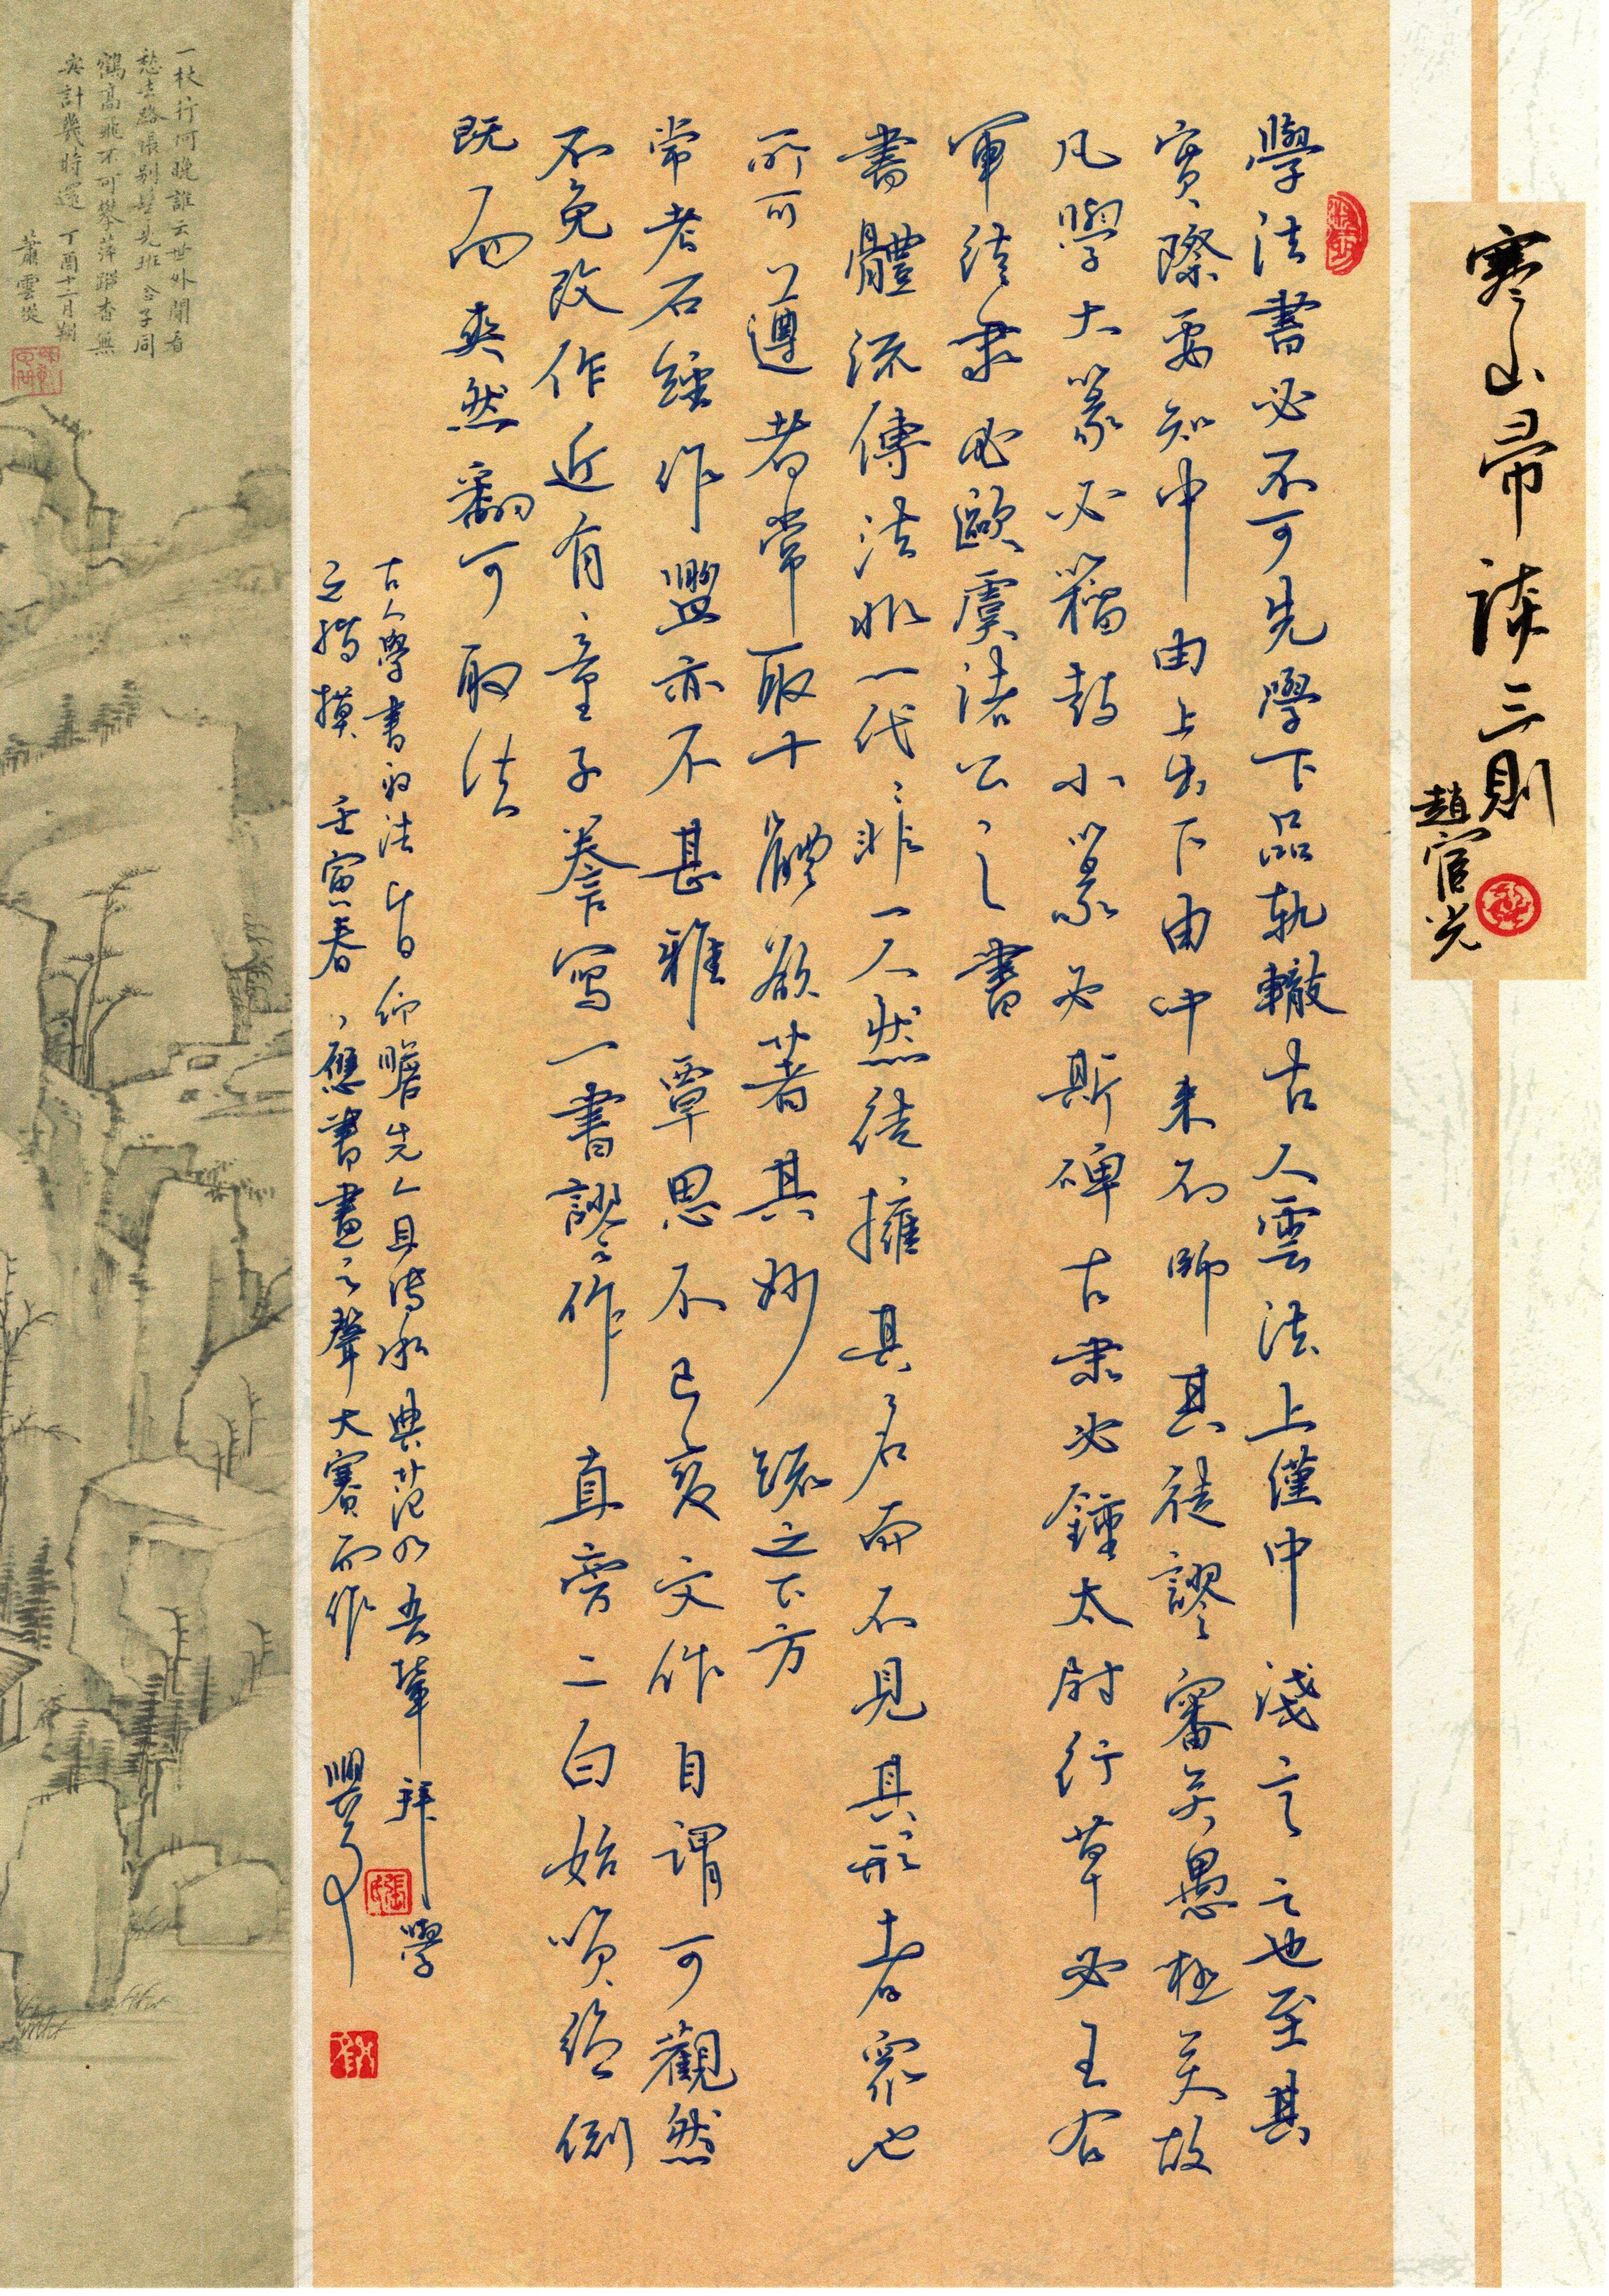 寒山帚談三則
趙宦光
學法書必不可先學下品軌轍古人雲法上僅中淺言之也至其
實際要知中由上出下由中來不師其徒謬審矣愚極矣故
凡學大篆必籀鼓小篆必斯碑古隶必鍾太尉行草必王右
軍徒隶必歐虞諸公之書
書體流傳法非一代代非一人然徒擁其名而不見其形者衆也
所可以遵者常取十體欲著其妙疏之下方
常考石經作㘝亦不甚雅覃思不已爰文作自謂可觀然
不免改作近有童子謄寫一書謬作直旁二白始嗔絶倒
既而爽然翻可取法
古人學書取法皆仰瞻先人且傳承典范乃吾輩拜學
之揩摸 壬寅春應書畫之聲大賽而作
一杖行何晚誰云世外閒看
愁去路長別髩先班
鶴高飛不可攀萍蹤杳無
定計幾時還 丁酉十二月朔
蕭雲從